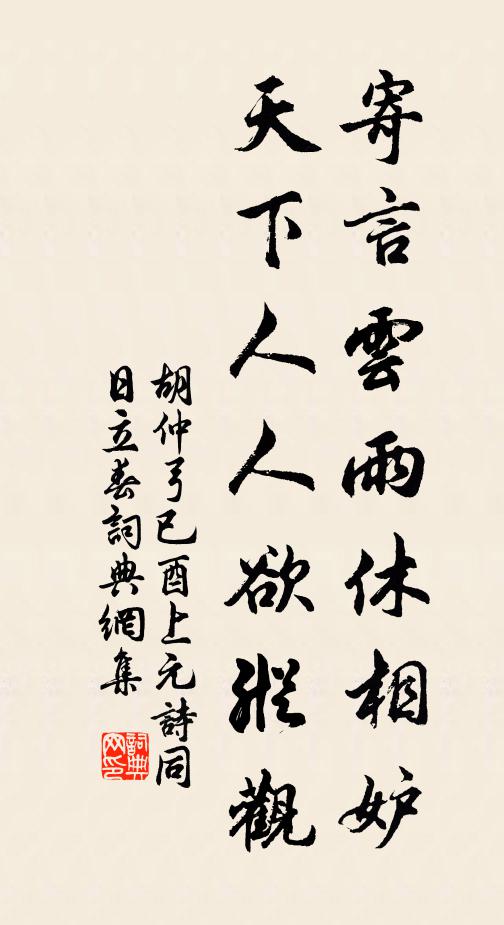 寄言雲雨休相妒
天下人人欲縱觀
胡仲弓己酉上元詩同
日立春詞典網集
詞典网印